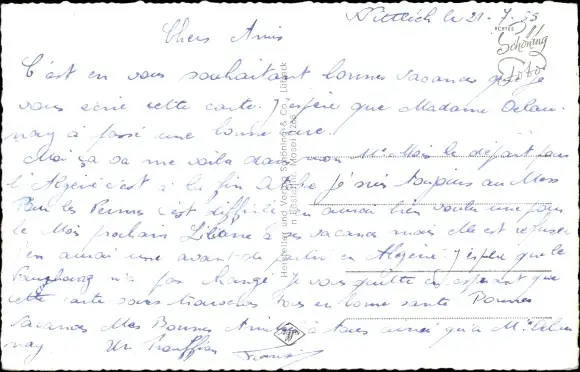 Wittlich le 21-7.55
Chers Amis
C'est en vous souhaitant bonnes vacances que je
vous écrie cette carte. J'espère que Madame Delau-
nay a passé une bonne cure.
Moi ça va me voila dans mon Mois le départ pour
l'Algérie c'est à la fin Je suis toujours au Mess
Pour les Permes c'est difficile j'en aurai bien voulu une pour
le Mois prochain Liliane à ses vacances mais elle est refuser
j'en aurai une avant de partir en Algérie. J'espère que le
n'a pas changé Je vous quitte en esperant que
cette carte vous trouvera tous en bonne santé Bonnes
Vacances Mes Bonnes à tous ainsi qu'a Me Delau
nay. Un
POSTES
Schöning
Foto
Hersteller und Verlag Schöning & Co., Lübeck
Agfa